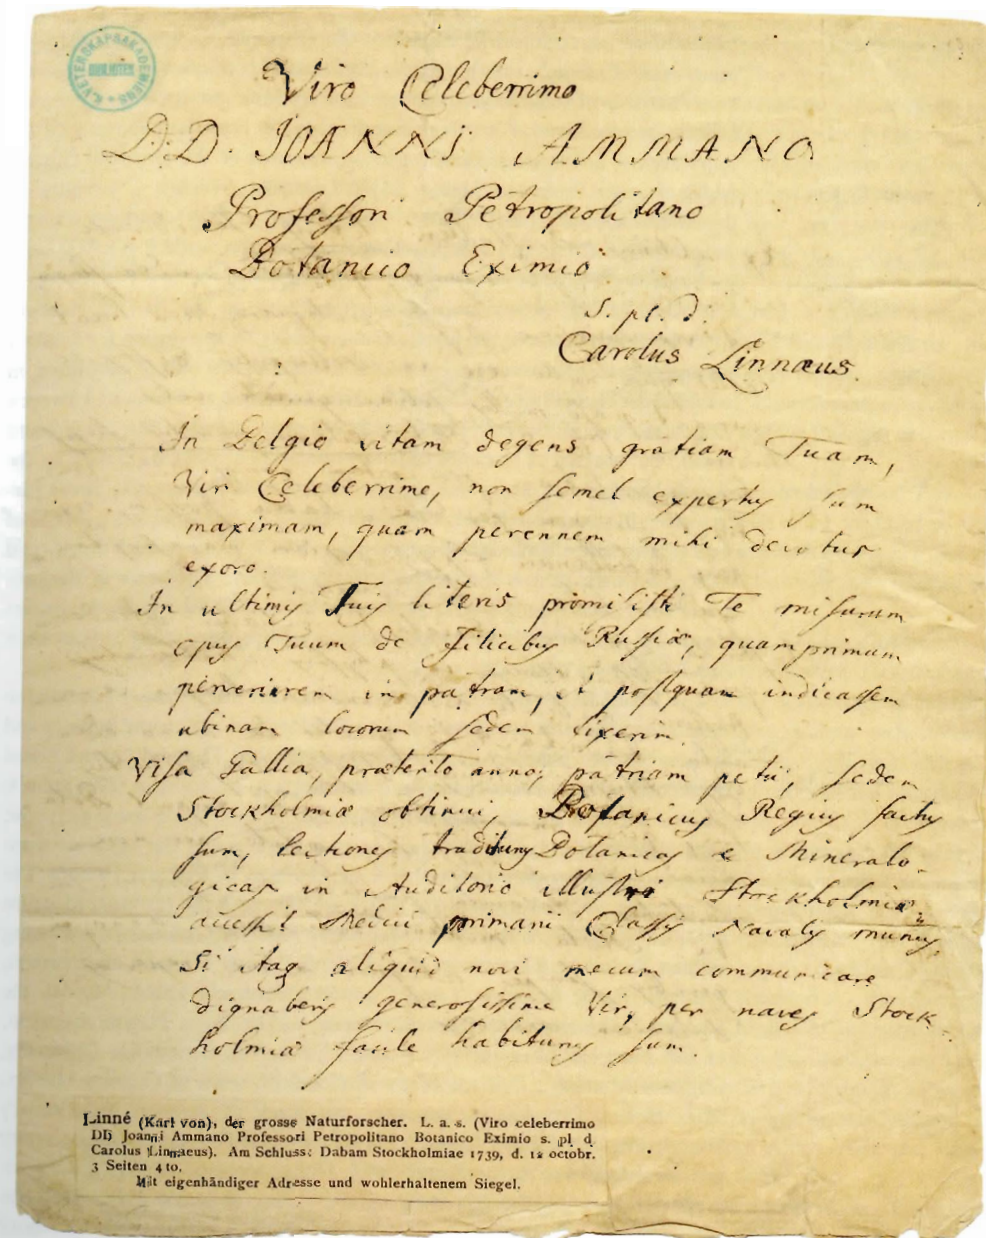 K. VETENSKAPSAKADEMIENS
BIBLIOTEK
Viro Celeberrimo
D. D. JOANNI AMMANO
Professori Petropolitano
Botanico Eximio
s. pl. d.
Carolus Linnæus.
In Belgio vitam degens gratiam Tuam,
Vir Celeberrime, non semel expertus sum
maximam, quam perennem mihi devotus
exoro.
In ultimis Tuis literis promisisti Te missurum
opus Tuum de Filicibus Russiæ, quamprimum
pervenirem in patriam, et postquam indicassem
ubinam locorum sedem fixerim.
Visa Gallia, præterito anno, patriam petii, sedem
Stockholmiæ obtinui, Botanicus Regius factus
sum, lectiones traditurus Botanicas & Mineralo-
gicas in Auditorio illustri Stockholmiæ
accessit Medici primarii Classis Navalis munus.
Si itaq aliquid novi mecum communicare
dignaberis generosissime Vir, per naves Stock-
holmiæ facile habiturus sum.
Linné (Karl von), der grosse Naturforscher. L. a. s. (Viro celeberrimo
DD Joanni Ammano Professori Petropolitano Botanico Eximio s. pl. d.
Carolus Linnaeus). Am Schluss: Dabam Stockholmiae 1739, d. 12 octobr.
3 Seiten 4to.
Mit eigenhändiger Adresse und wohlerhaltenem Siegel.